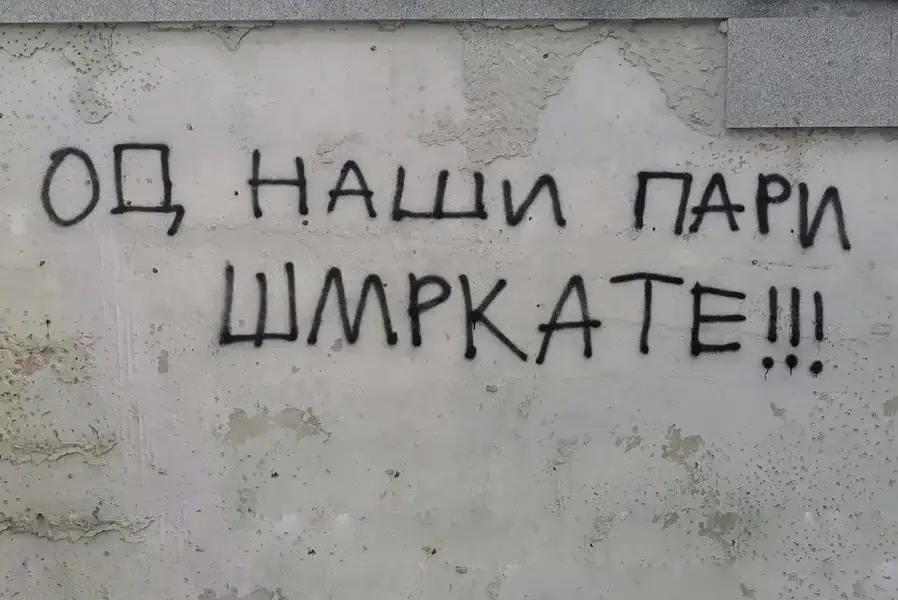 ОД НАШИ ПАРИ
ШМРКАТЕ!!!